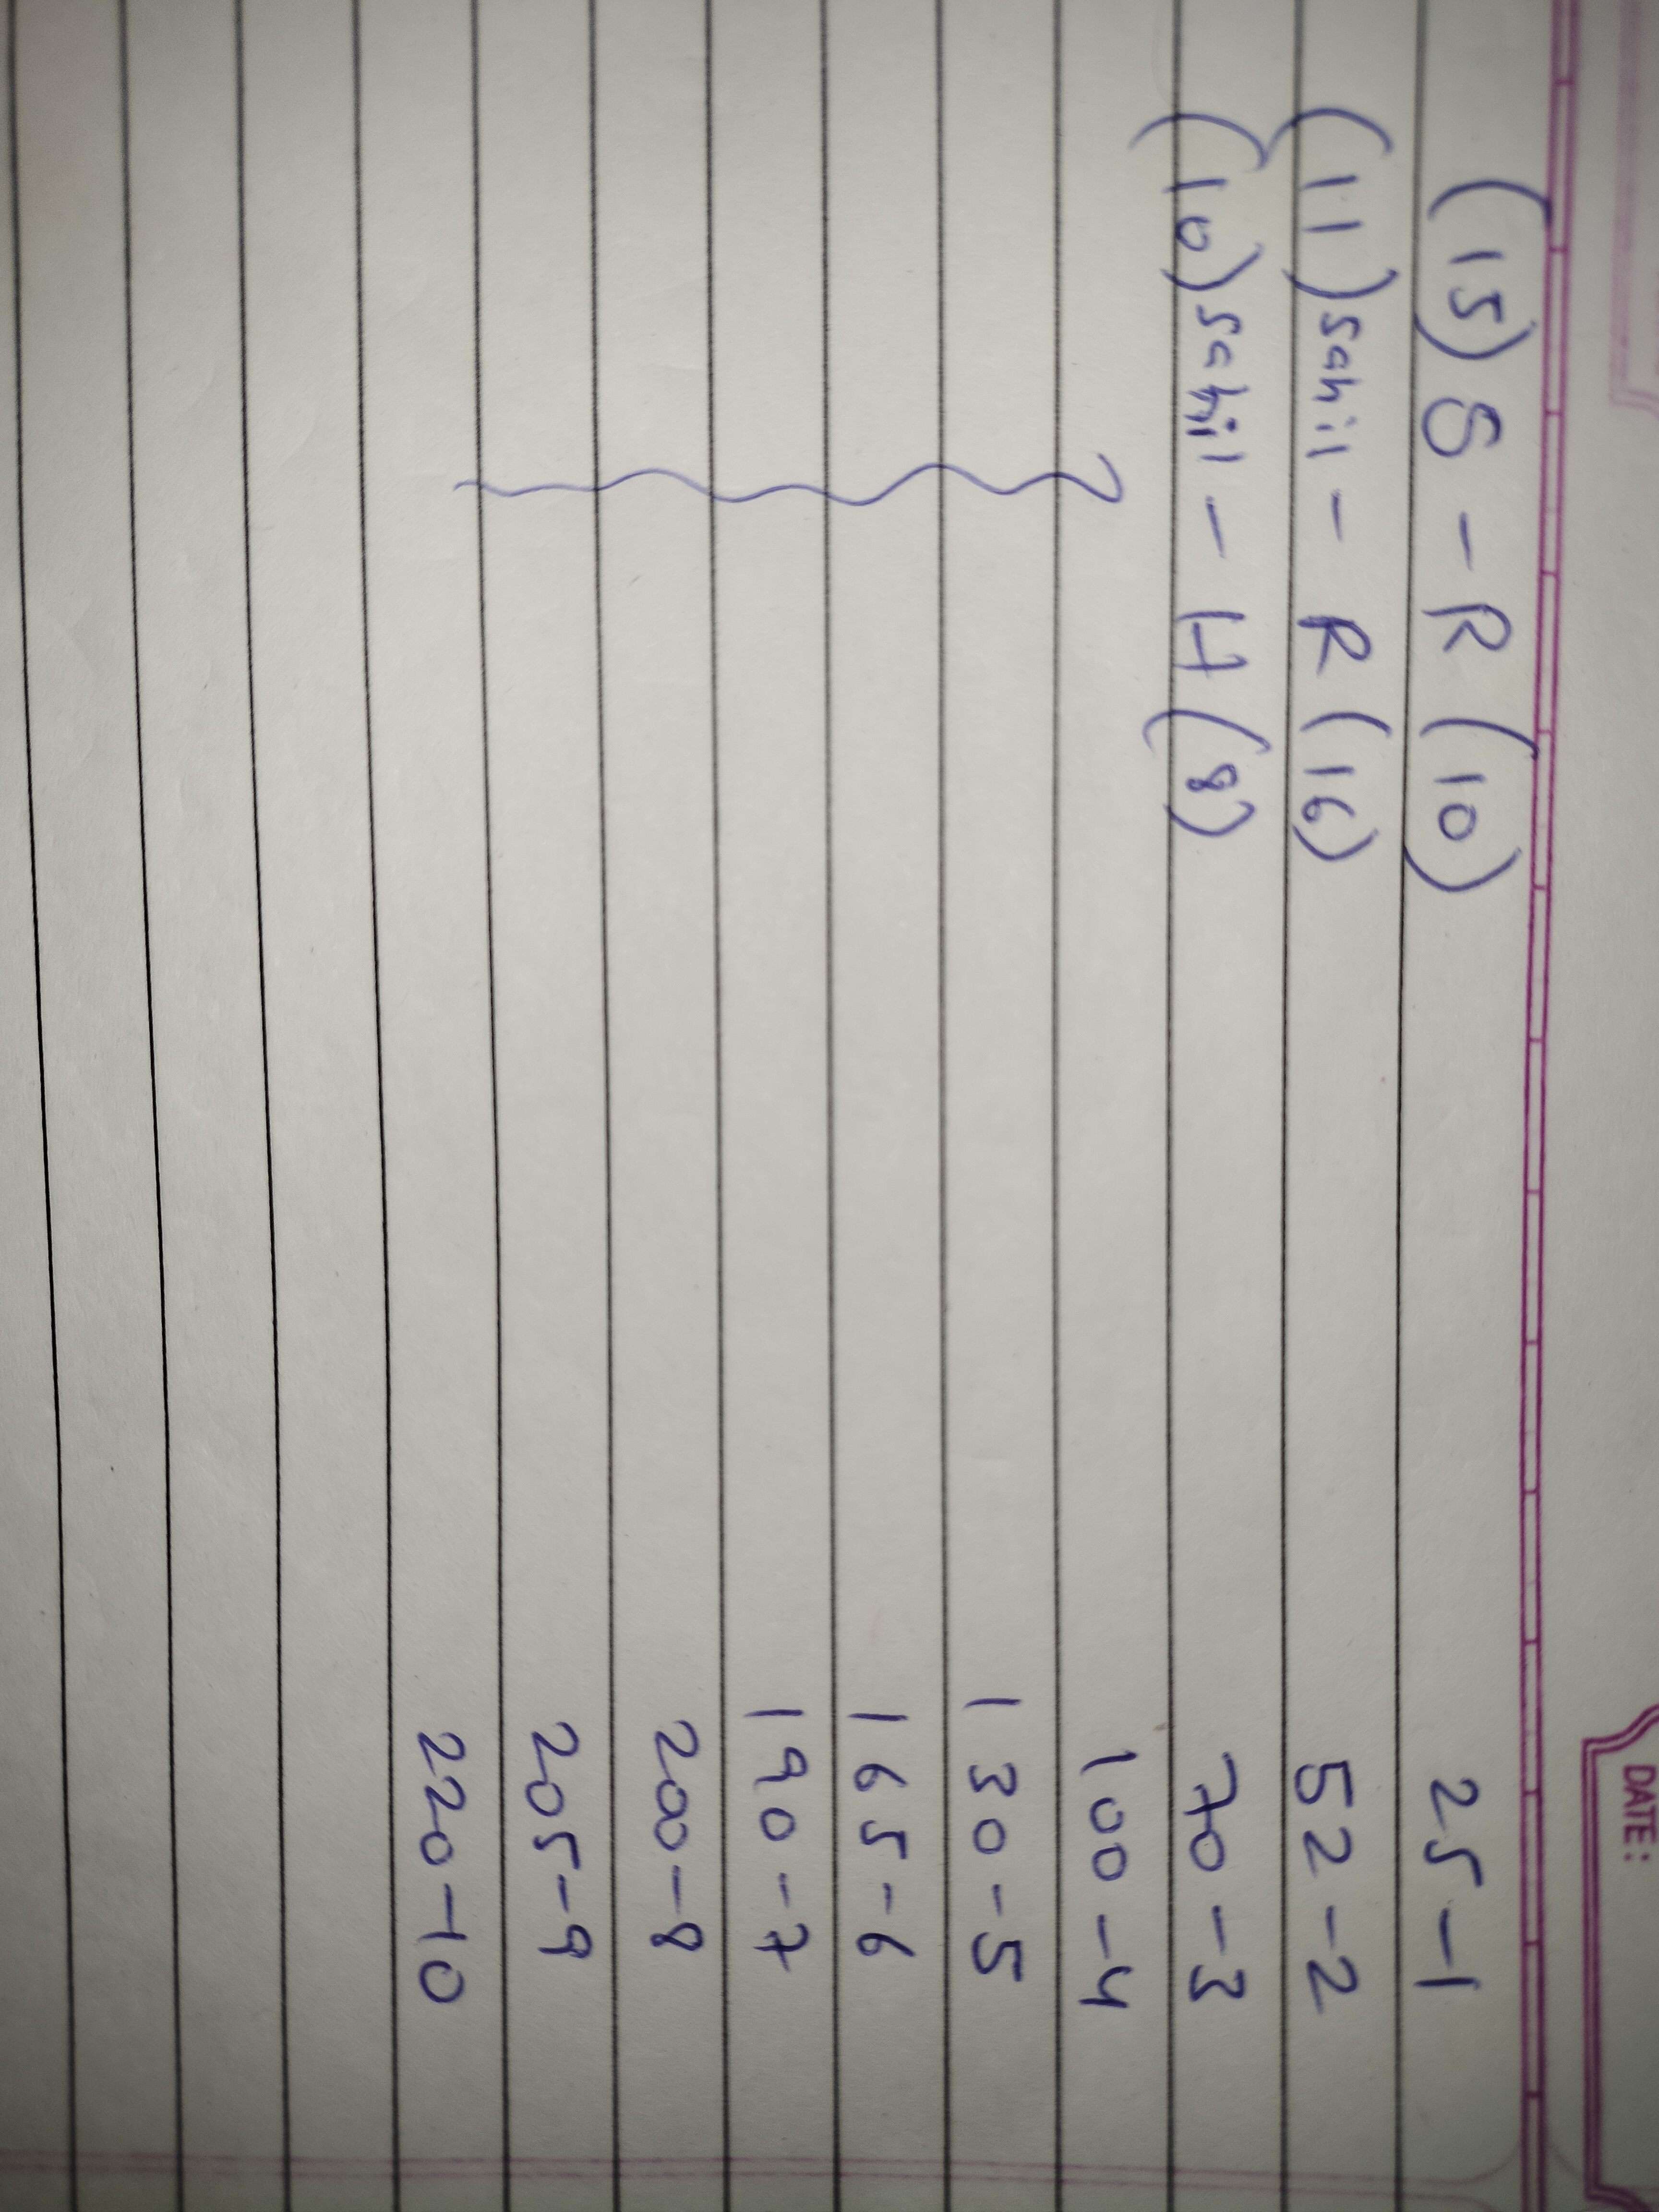 DATE:
(15) S - R (10) 25-1
(11) Sahil - R (16) 52-2
(10) Sahil - H (8) 70-3
100-4
130-5
165-6
190-7
200-8
205-9
220-10